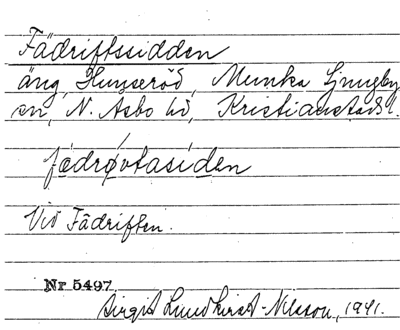 Fädriftssidden
äng, Hunseröd, Munka Ljungby
sn, N. Åsbo hd, Kristianstads l.
fädrǿvtasiden
Vid Fädriften.
Nr 5497
Birgit Lundkvist-Nilsson, 1941.